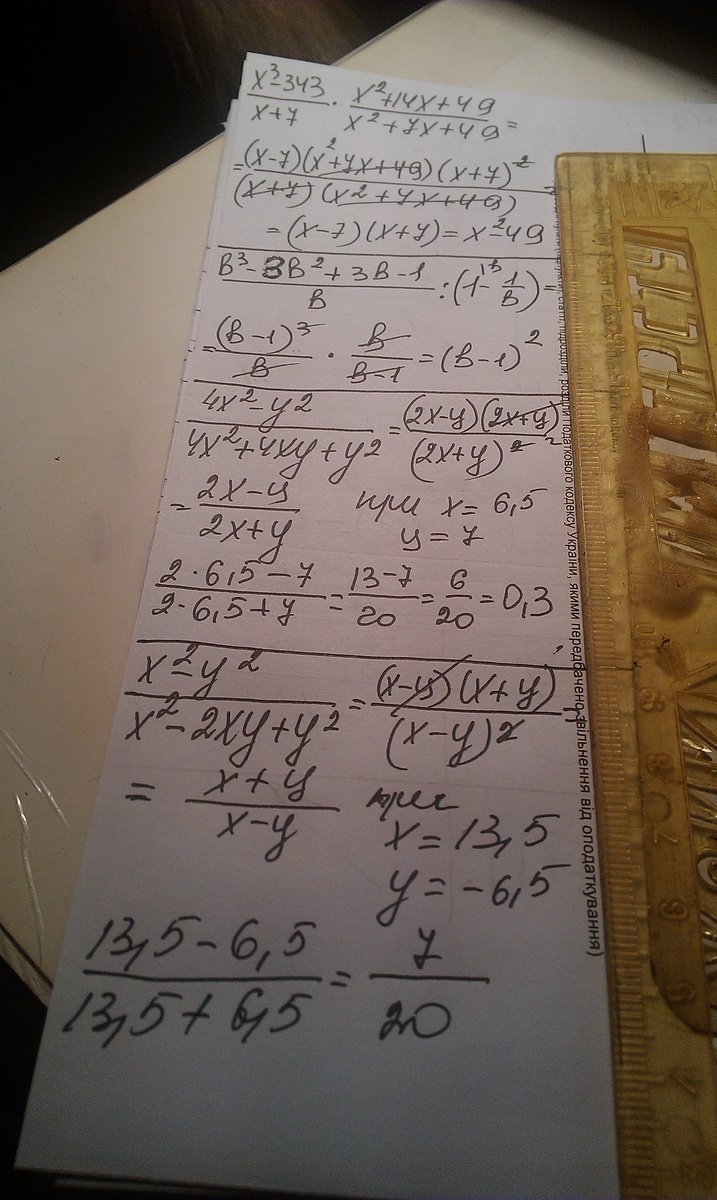 x³-343/x+7 · x²+14x+49/x²+7x+49 =
= (x-7)(x²+7x+49)(x+7)²/(x+7)(x²+7x+49) =
= (x-7)(x+7) = x²-49
в³-3в²+3в-1/в : (1-1/в) =
= (в-1)³/в · в/в-1 = (в-1)²
4x²-y²/4x²+4xy+y² = (2x-y)(2x+y)/(2x+y)² =
= 2x-y/2x+y при x = 6,5
y = 7
2·6,5-7/2·6,5+7 = 13-7/20 = 6/20 = 0,3
x²-y²/x²-2xy+y² = (x-y)(x+y)/(x-y)² =
= x+y/x-y при
x = 13,5
y = -6,5
13,5-6,5/13,5+6,5 = 7/20
розділи Податкового кодексу України, якими передбачено звільнення від оподаткування)